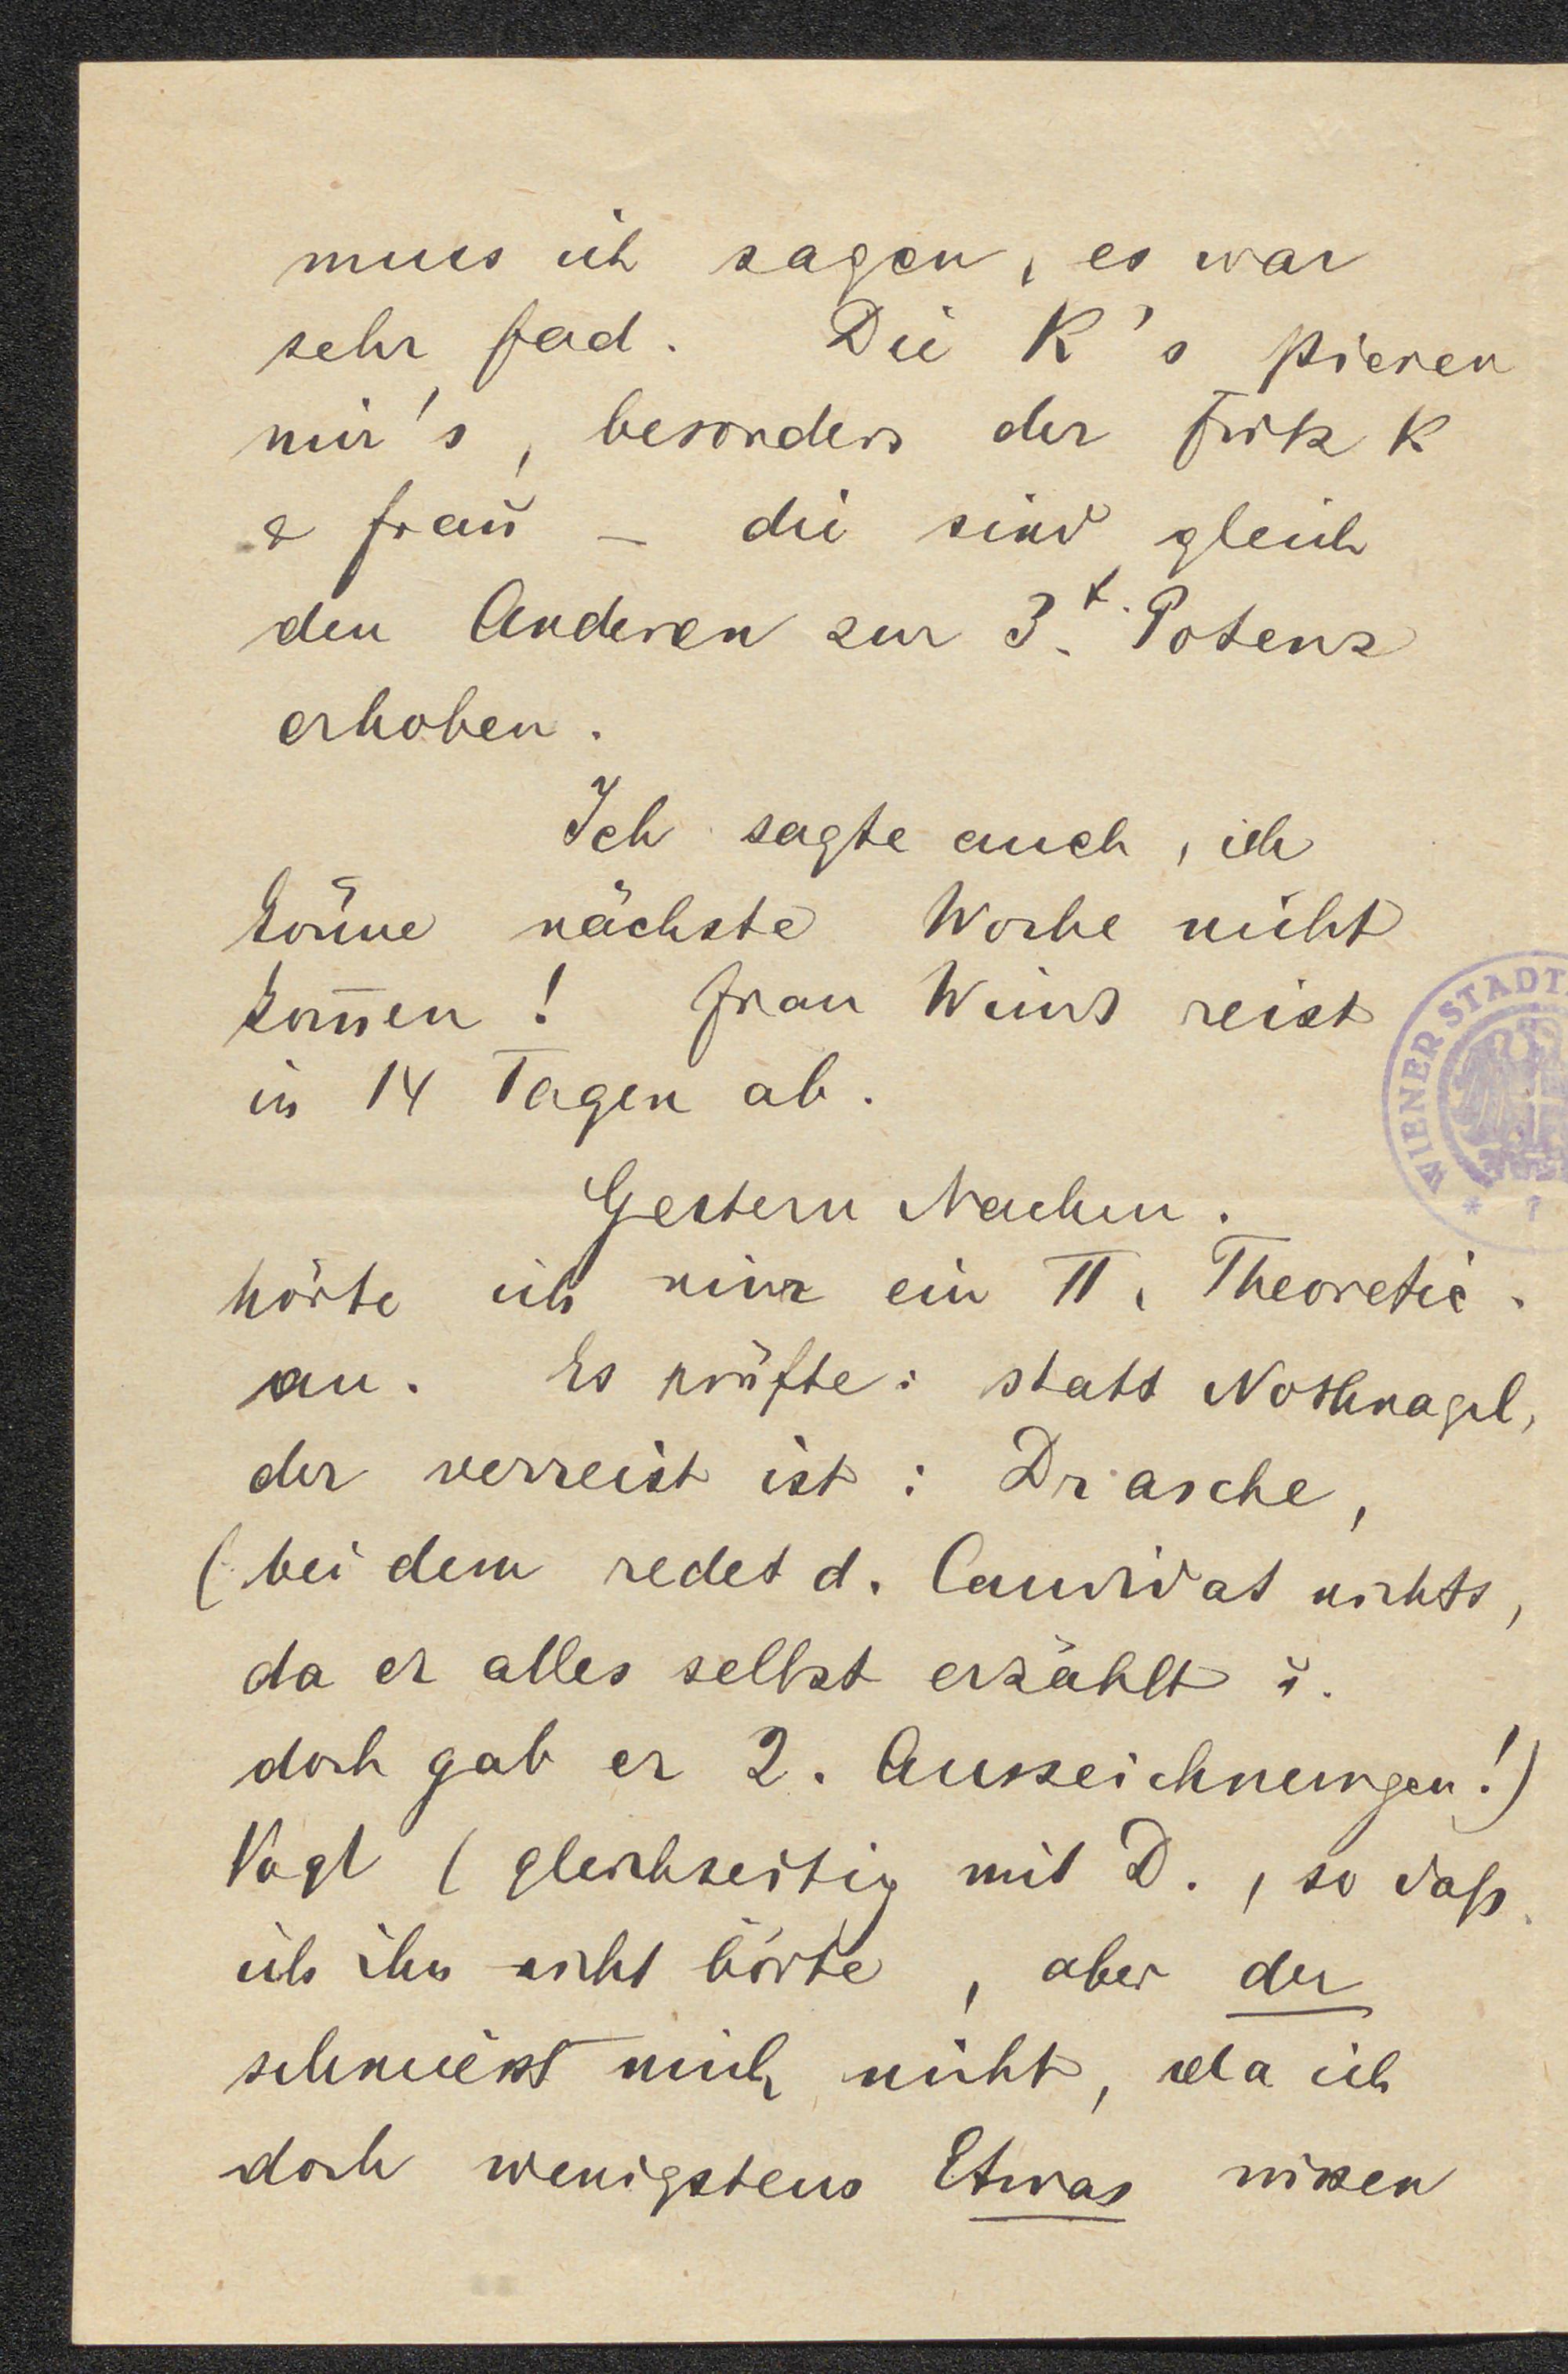 muss ich sagen, es war
sehr fad. Die K's
mir's, besonders der Fritz K
& Frau – die sind gleich
den Anderen zur 3t. Potenz
erhoben.
Ich sagte auch, ich
könne nächste Woche nicht
kom̄en! Frau reist
in 14 Tagen ab.
Gestern Nachm.
hörte ich nur ein II. Theoretic.
an. Es prüfte: statt Nothnagel,
der verreist ist: Drasche,
(bei dem redet d. Candidat nichts,
da er alles selbst erzählt u.
doch gab er 2. Auszeichnungen!)
Vogl (gleichzeitig mit D., so daß
ich ihn nicht hörte, aber der
mich nicht, da ich
doch wenigstens Etwas wissen
WIENER STADT